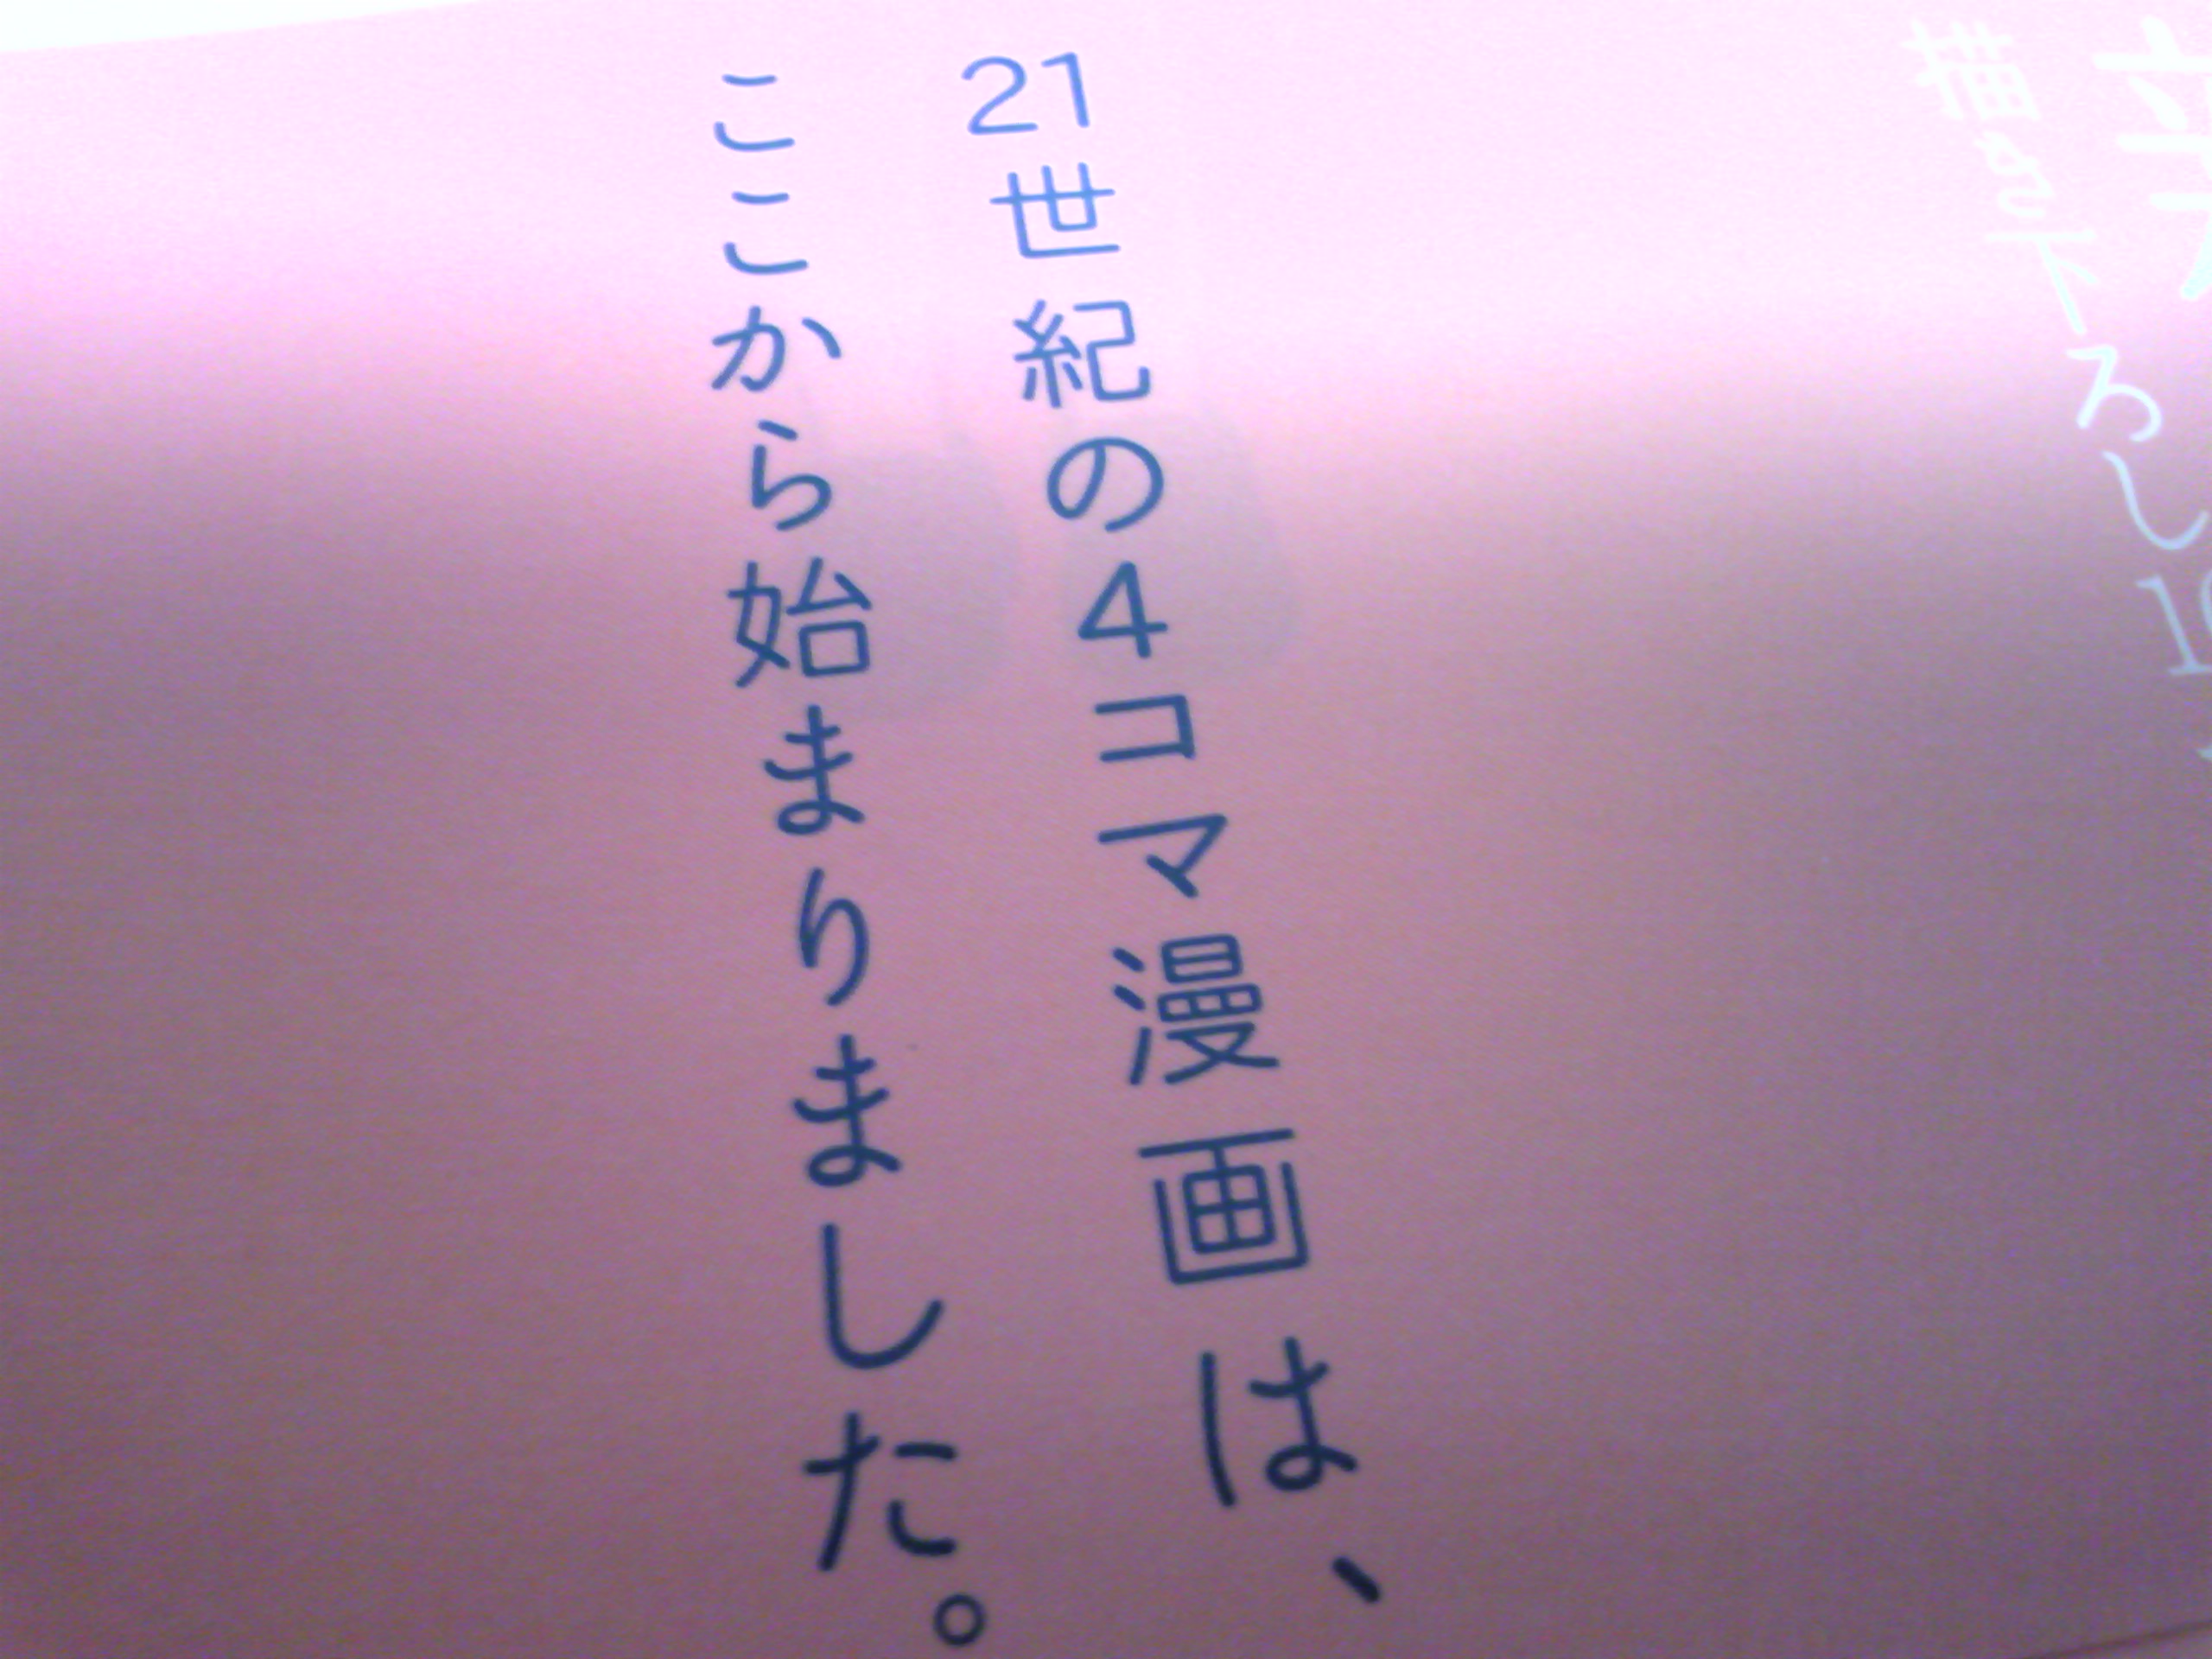 描き下ろし
21世紀の4コマ漫画は、
ここから始まりました。